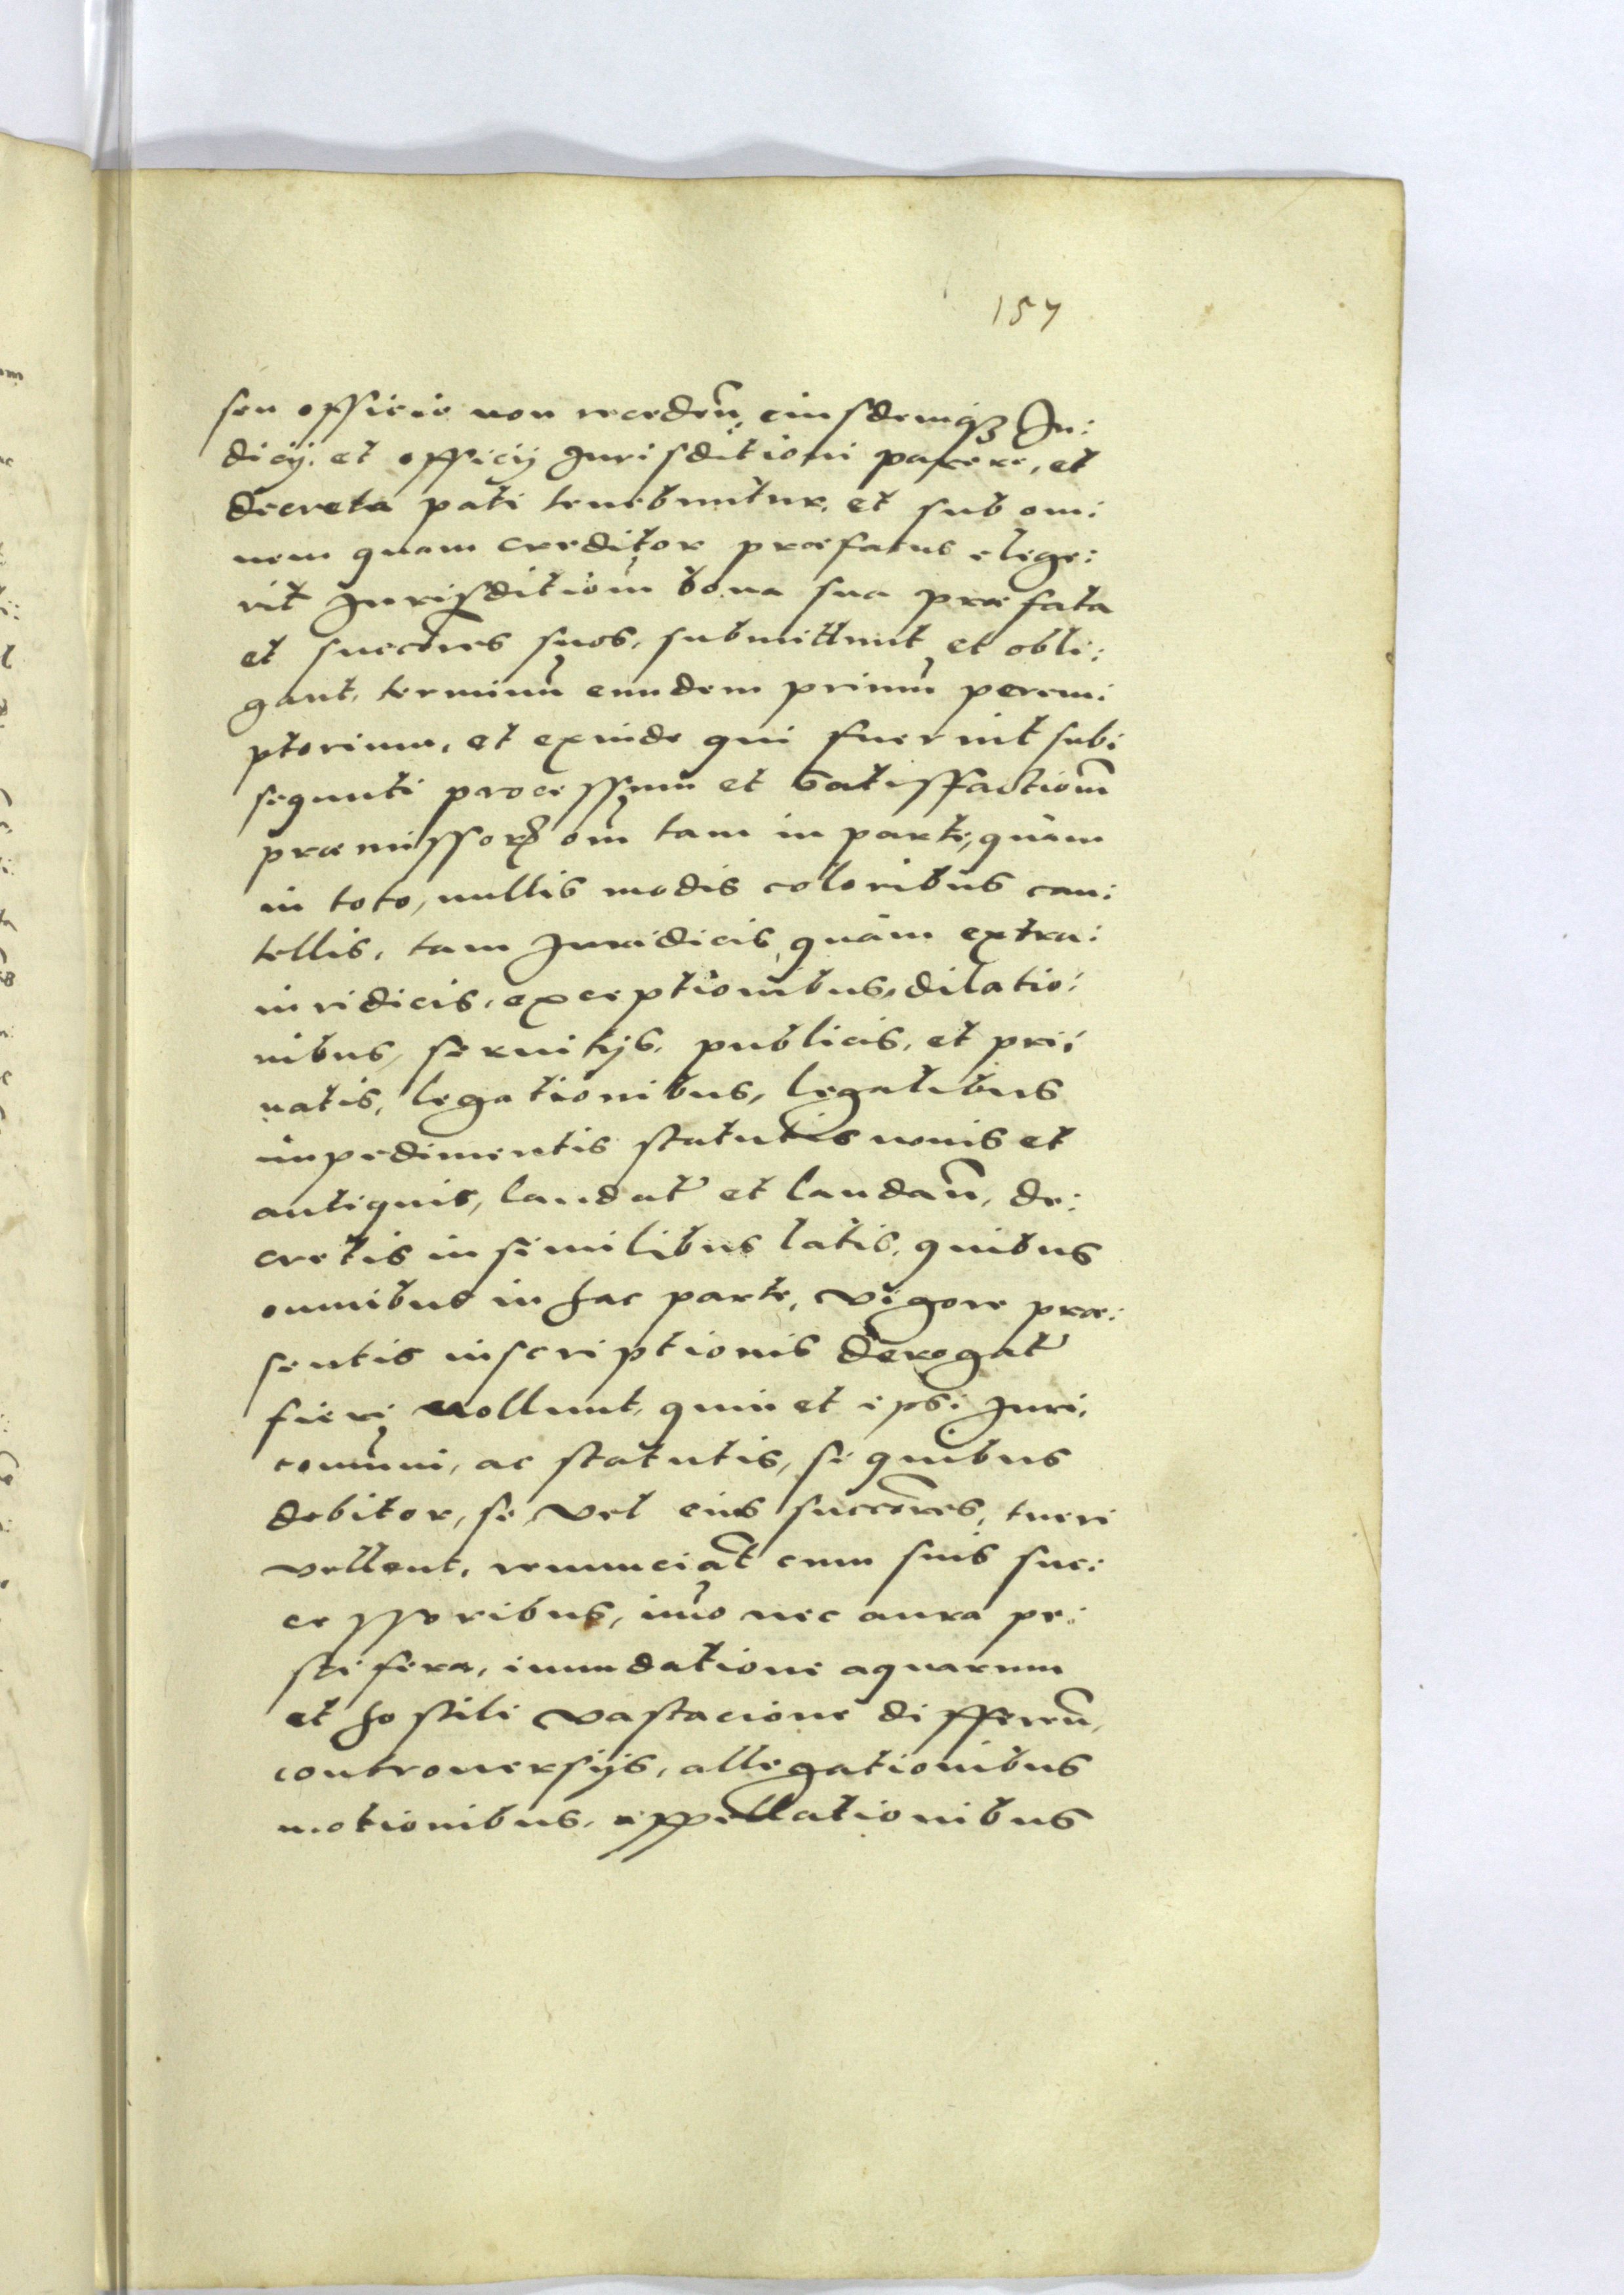 157
seu officio non recedeñ, eiusdemqȝ Iu:
dicij, et officij Iurisditioni parere, et
decreta pati tenebuntur, et sub om:
nem quam creditor præfatus elege:
rit Iurisditiom̃ bona sua præfata
et succores suos, submittunt et obli:
gant, terminũ eundem primũ perem:
ptorium, et exinde qui fuerint sub:
sequuti processuum et satisfactiom̃
præmissorꝝ om̃ tam in parte, quàm
in toto, nullis modis coloribus cau:
tellis, tam Iuridicis quàm extra:
iuridicis, exceptionibus, dilatio:
nibus, seruitijs, publicis, et pri:
uatis, legationibus, legalibus
impedimentis statutis nouis et
antiquis, laudat̃ et laudañ, de:
cretis in similibus latis, quibus
omnibus in hac parte, vigore præ:
sentis inscriptionis derogat̃
fieri uollunt, quin et ipsi Iuri,
com̃uni, ac statutis, si quibus
debitor, se vel eius succores, tueri
vellent, renunciãt cum suis suc:
cessoribus, im̃o nec aura pe:
stifera, inundatione aquarum
et hostili vastacione differeñ,
controuersijs, allegationibus
motionibus, appellationibus